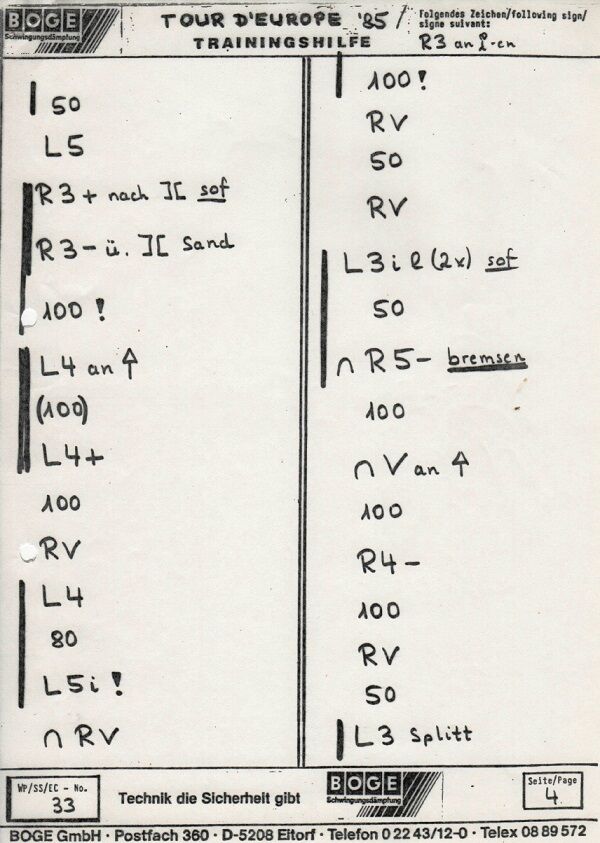 BOGE
Schwingungsdämpfung
TOUR D'EUROPE '85/
TRAININGSHILFE
Folgendes Zeichen/following sign/
signe suivant:
R3 an
50
L5
R3+ nach ][ sof
R3- ü. ][ Sand
100 !
L4 an ↑
(100)
L4+
100
RV
L4
80
L5i !
∩ RV
100!
RV
50
RV
L3 i l (2x) sof
50
∩ R5- bremsen
100
∩ V an ↑
100
R4-
100
RV
50
L3 Splitt
WP/SS/EC - No.
33
Technik die Sicherheit gibt
BOGE
Schwingungsdämpfung
Seite/Page
4
BOGE GmbH · Postfach 360 · D-5208 Eitorf · Telefon 0 22 43/12-0 · Telex 08 89 572